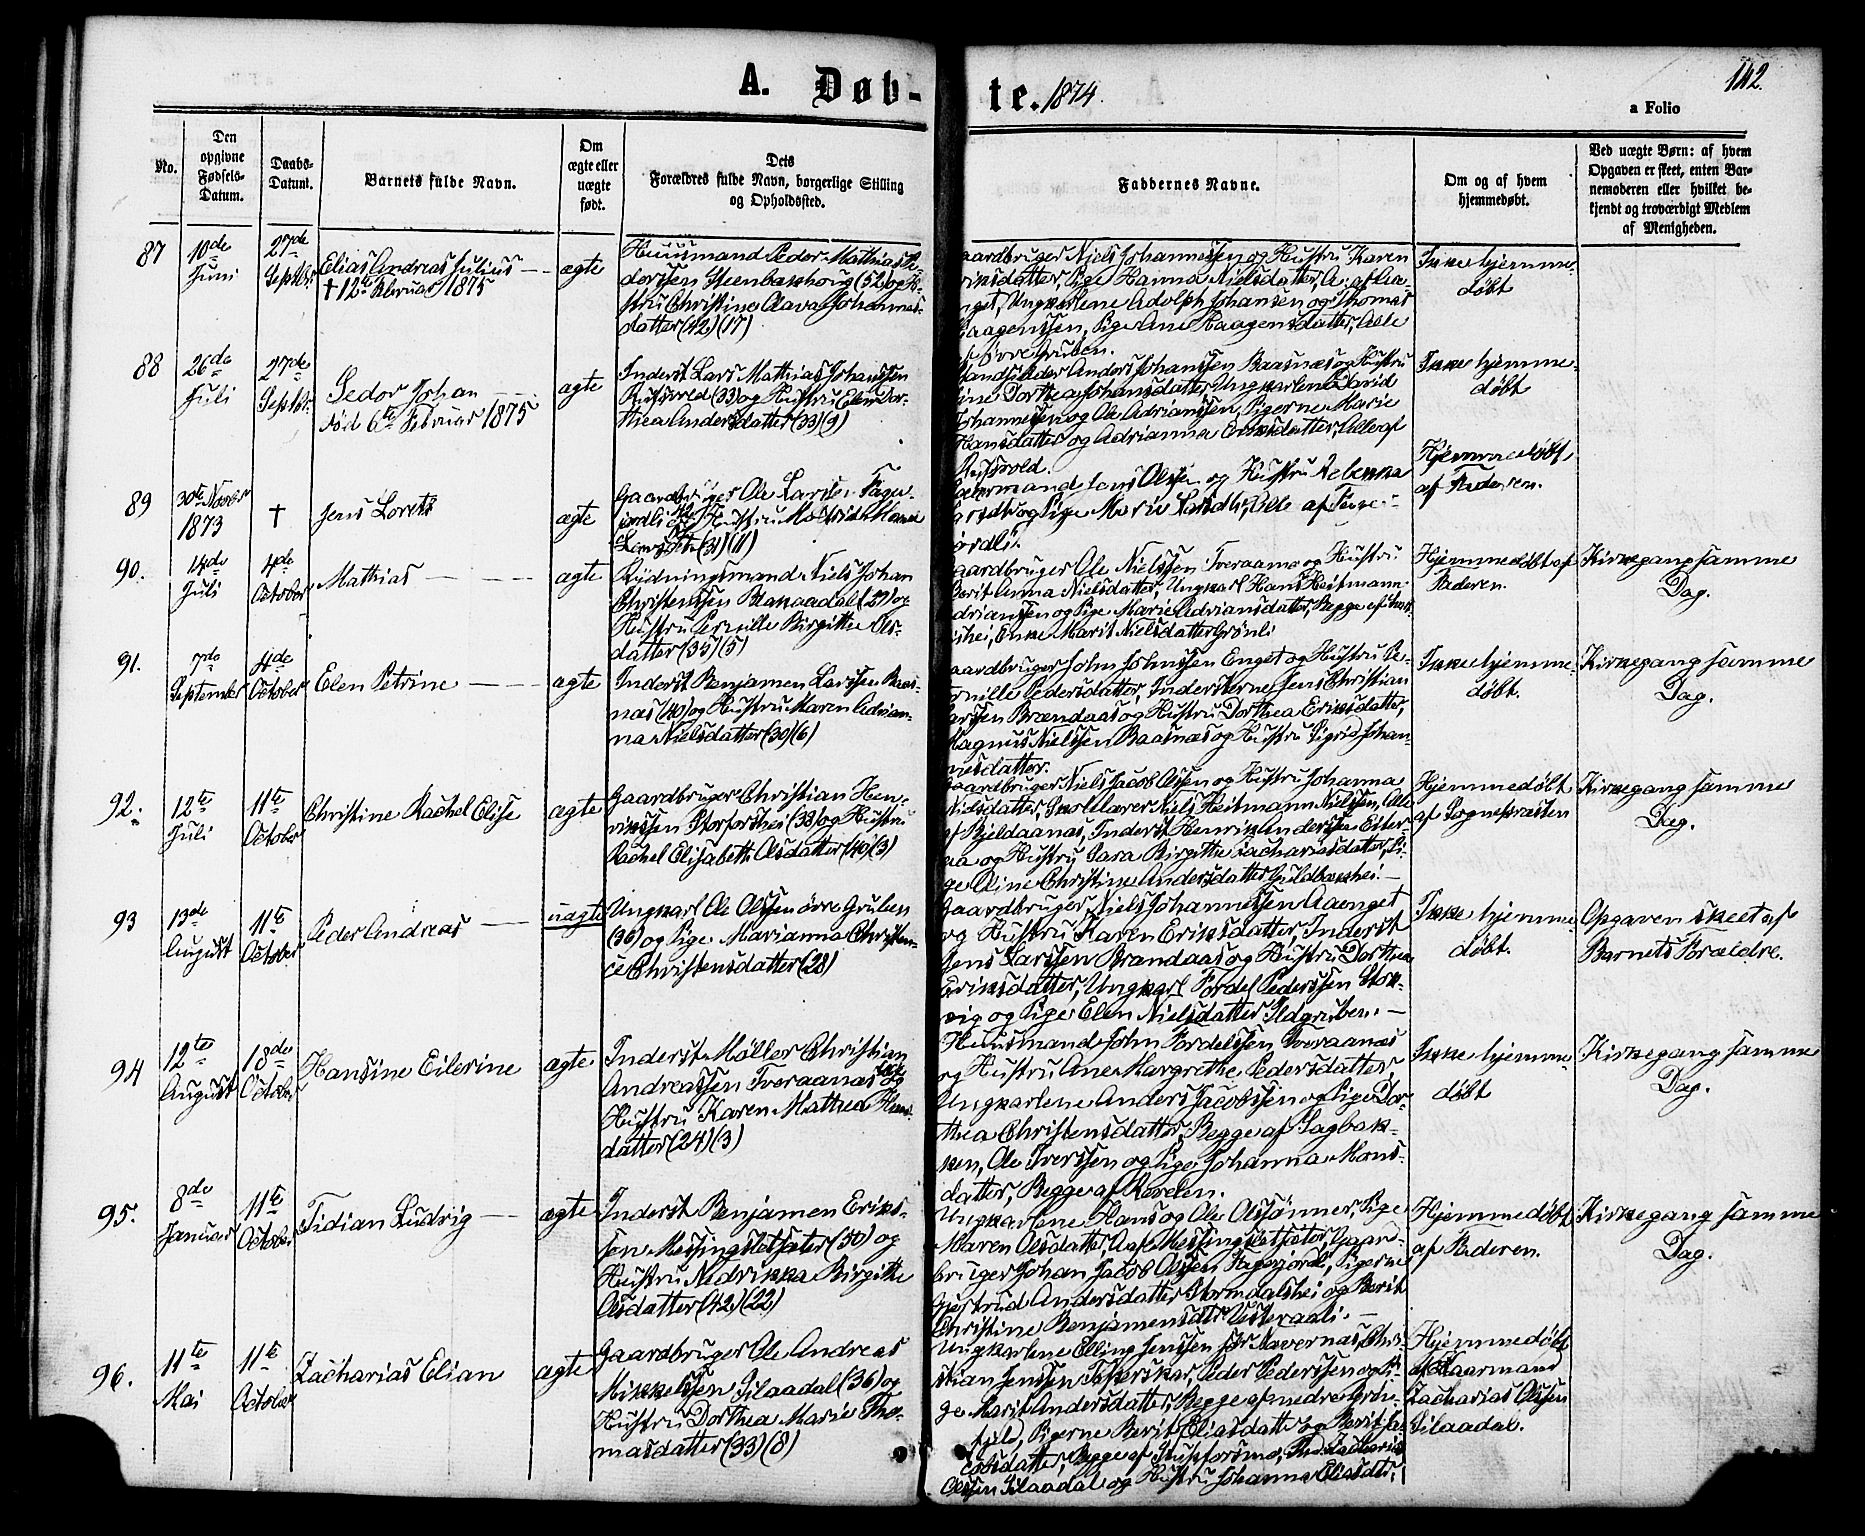 A. Døb-
te. 1874.
142.
a Folio
No.
Den
opgivne
Fødsels-
Datum.
Daabs-
Datum.
Barnets fulde Navn.
Om
ægte eller
uægte
født.
Dets
Forældres fulde Navn, borgerlige Stilling
og Opholdssted.
Faddernes Navne.
Om og af hvem
hjemmedøbt.
Ved uægte Børn: af hvem
Opgaven er skeet, enten Bar-
nemoderen eller hvilket be-
kjendt og troværdigt Medlem
af Menigheden.
87
10de
Juni
27de
Septbr
Elias Andreas Julius
† 12te Februar 1875
ægte
Huusmand Peder Mathias Pe-
derssen Steenbakhoug (52) og Hu-
stru Christine Olava Johannes-
datter (42) (17)
aardbruger Niels Johannessen og Hustru Karen
riksdatter, Pige Hanna Nielsdatter, A. af Aa-
nget, Ungkarlene Adolph Johansen og Thomas
Haagenssen, Pige Ane Haagensdatter, Alle
af övre Gruben.
Ikke hjemme-
døbt
88
26de
Juli
27de
Septbr
Pedor Johan
död 6te Februar 1875
ægte
Inderst Lars Mathias Johanssen
Ruusvold (33) og Hustru Elen Dor-
thea Andersdatter (33) (9)
Anders Johanssen Baasnæs og Hustru
ine Dorthea Johansdatter, Ungkarlene David
Johannessen og Ole Adrianssen, Pigerne Marie
Hansdatter og Adrianna Eriksdatter, Alle af
Ruusvold.
Ikke hjemme-
døbt
89
30te Novbr
1873
†
Jens Lorents
ægte
Gaardbruger Ole Larsen Fager-
jordli og Hustru
(31) (11)
Jens Olsen og Hustru Rebekka
og Pige Marie Larsdtr, Alle af
jordli.
Hjemmedøbt
af Faderen.
90.
14de
Juli
4de
October
Mathias
ægte
Rydningsmand Niels Johan
Christenssen Blakaadal (27) og
Hustru Pernille Birgitte Ols-
datter (35) (5)
aardbruger Ole Nielssen Tveraamo og Hustru
Berit Anna Nielsdatter, Ungkarl Hans Heitmann
Adrianssen og Pige Marie Adriansdatter, Begge af
hei, Enke Marit Nielsdatter Grönli
Hjemmedøbt af
Faderen.
Kirkegang samme
Dag.
91.
7de
September
4de
October
Elen Petrine
ægte
Inderst Benjamen Larssen Baas-
næs (40) og Hustru Maren Adrian-
na Nielsdatter (30) (6)
aardbruger John Johnssen Enget og Hustru Pe-
rnille Pedersdatter, Inderstene Jens Christian
Larssen Brændaas og Hustru Dorthea Eriksdatter,
Magnus Nielssen Baasnæs og Hustru Sigrid Johan-
nesdatter.
Ikke hjemme-
døbt.
Kirkegang samme
Dag.
92.
12te
Juli
11te
October
Christine Rachel Elise
ægte
Gaardbruger Christian Hen-
rikssen Storforshei (38) og Hustru
Rachel Elisabeth Olsdatter (40) (3)
Gaardbruger Niels Jacob Olssen og Hustru Johanna
Nielsdatter, Skolelærer Niels Heitmann Nielssen, Alle
af Bjeldaanæs, Inderst Henrik Anderssen Eiter-
aa og Hustru Sara Birgitte Zachariasdatter, Pi-
ge Aine Christine Andersdatter Guldbakhei.
Hjemmedøbt
af Sognepræsten
Kirkegang samme
Dag.
93
13de
August
11te
October
Peder Andreas
uægte
Ungkarl Ole Olssen övre Gruben
(36) og Pige Marianna Christen-
ce Christensdatter (28)
Gaardbruger Niels Johannessen Aaenget
og Hustru Karen Eriksdatter, Inderst
Jens Larssen Brændaas og Hustru Dorthea
Eriksdatter, Ungkarl Fordel Pederssen Stok-
vig og Pige Elen Nielsdatter Ildgruben.
Ikke hjemme-
døbt.
Opgaven skeet af
Barnets Forældre.
94
12te
August
18de
October
Hansine Eilerine
ægte
Inderst Möller Christian
Andreassen Tveraanæs og
Hustru Karen Mathea Hans-
datter (24) (3)
Huusmand John Fordelssen Tveraanæs
og Hustru Ane Margrethe Pedersdatter,
Ungkarlene Anders Jacobssen og Pige Dor-
thea Christensdatter, Begge af Sagbak-
ken, Ole Iverssen og Pige Johanna Mons-
datter, Begge af Renlen.
Ikke hjemme-
døbt
Kirkegang samme
Dag.
95.
8de
Januar
11te
October
Tidian Ludvig
ægte
Inderst Benjamen Eriks-
sen Messingsletsæter (50) og
Hustru Nedrikka Birgitte
Olsdatter (42) (22)
Ungkarlene Hans og Ole Olssønner, Pige
Maren Olsdatter, A. af Messingsletsæter, Gaard-
bruger Johan Jacob Olssen Fagerjordli, Pigerne
Gjertrud Andersdatter Stormdalshei og Berit
Christine Benjamensdtr Vesteraali.
Hjemmedøbt
af Faderen.
Kirkegang samme
Dag.
96.
11te
Mai
11te
October
Zacharias Elian
ægte
Gaardbruger Ole Andreas
Mikkelssen Pilaadal (36) og
Hustru Dorthea Marie Tho-
masdatter (33) (8)
Ungkarlene Elling Jenssen Navernæs, Chri-
stian Jenssen Toskerskar, Peder Pederssen og Pi-
ge Marit Andersdatter, Begge af nedre Grön-
fjeld, Pigerne Berit Eliasdatter og Berit Ja-
cobsdatter, Begge af Stupforsmo, Zacharias
Olssen Pilaadal og Hustru Johanna Eliasdtr.
Hjemmedøbt
af Kaarmand
Zacharias Olssen
Pilaadal.